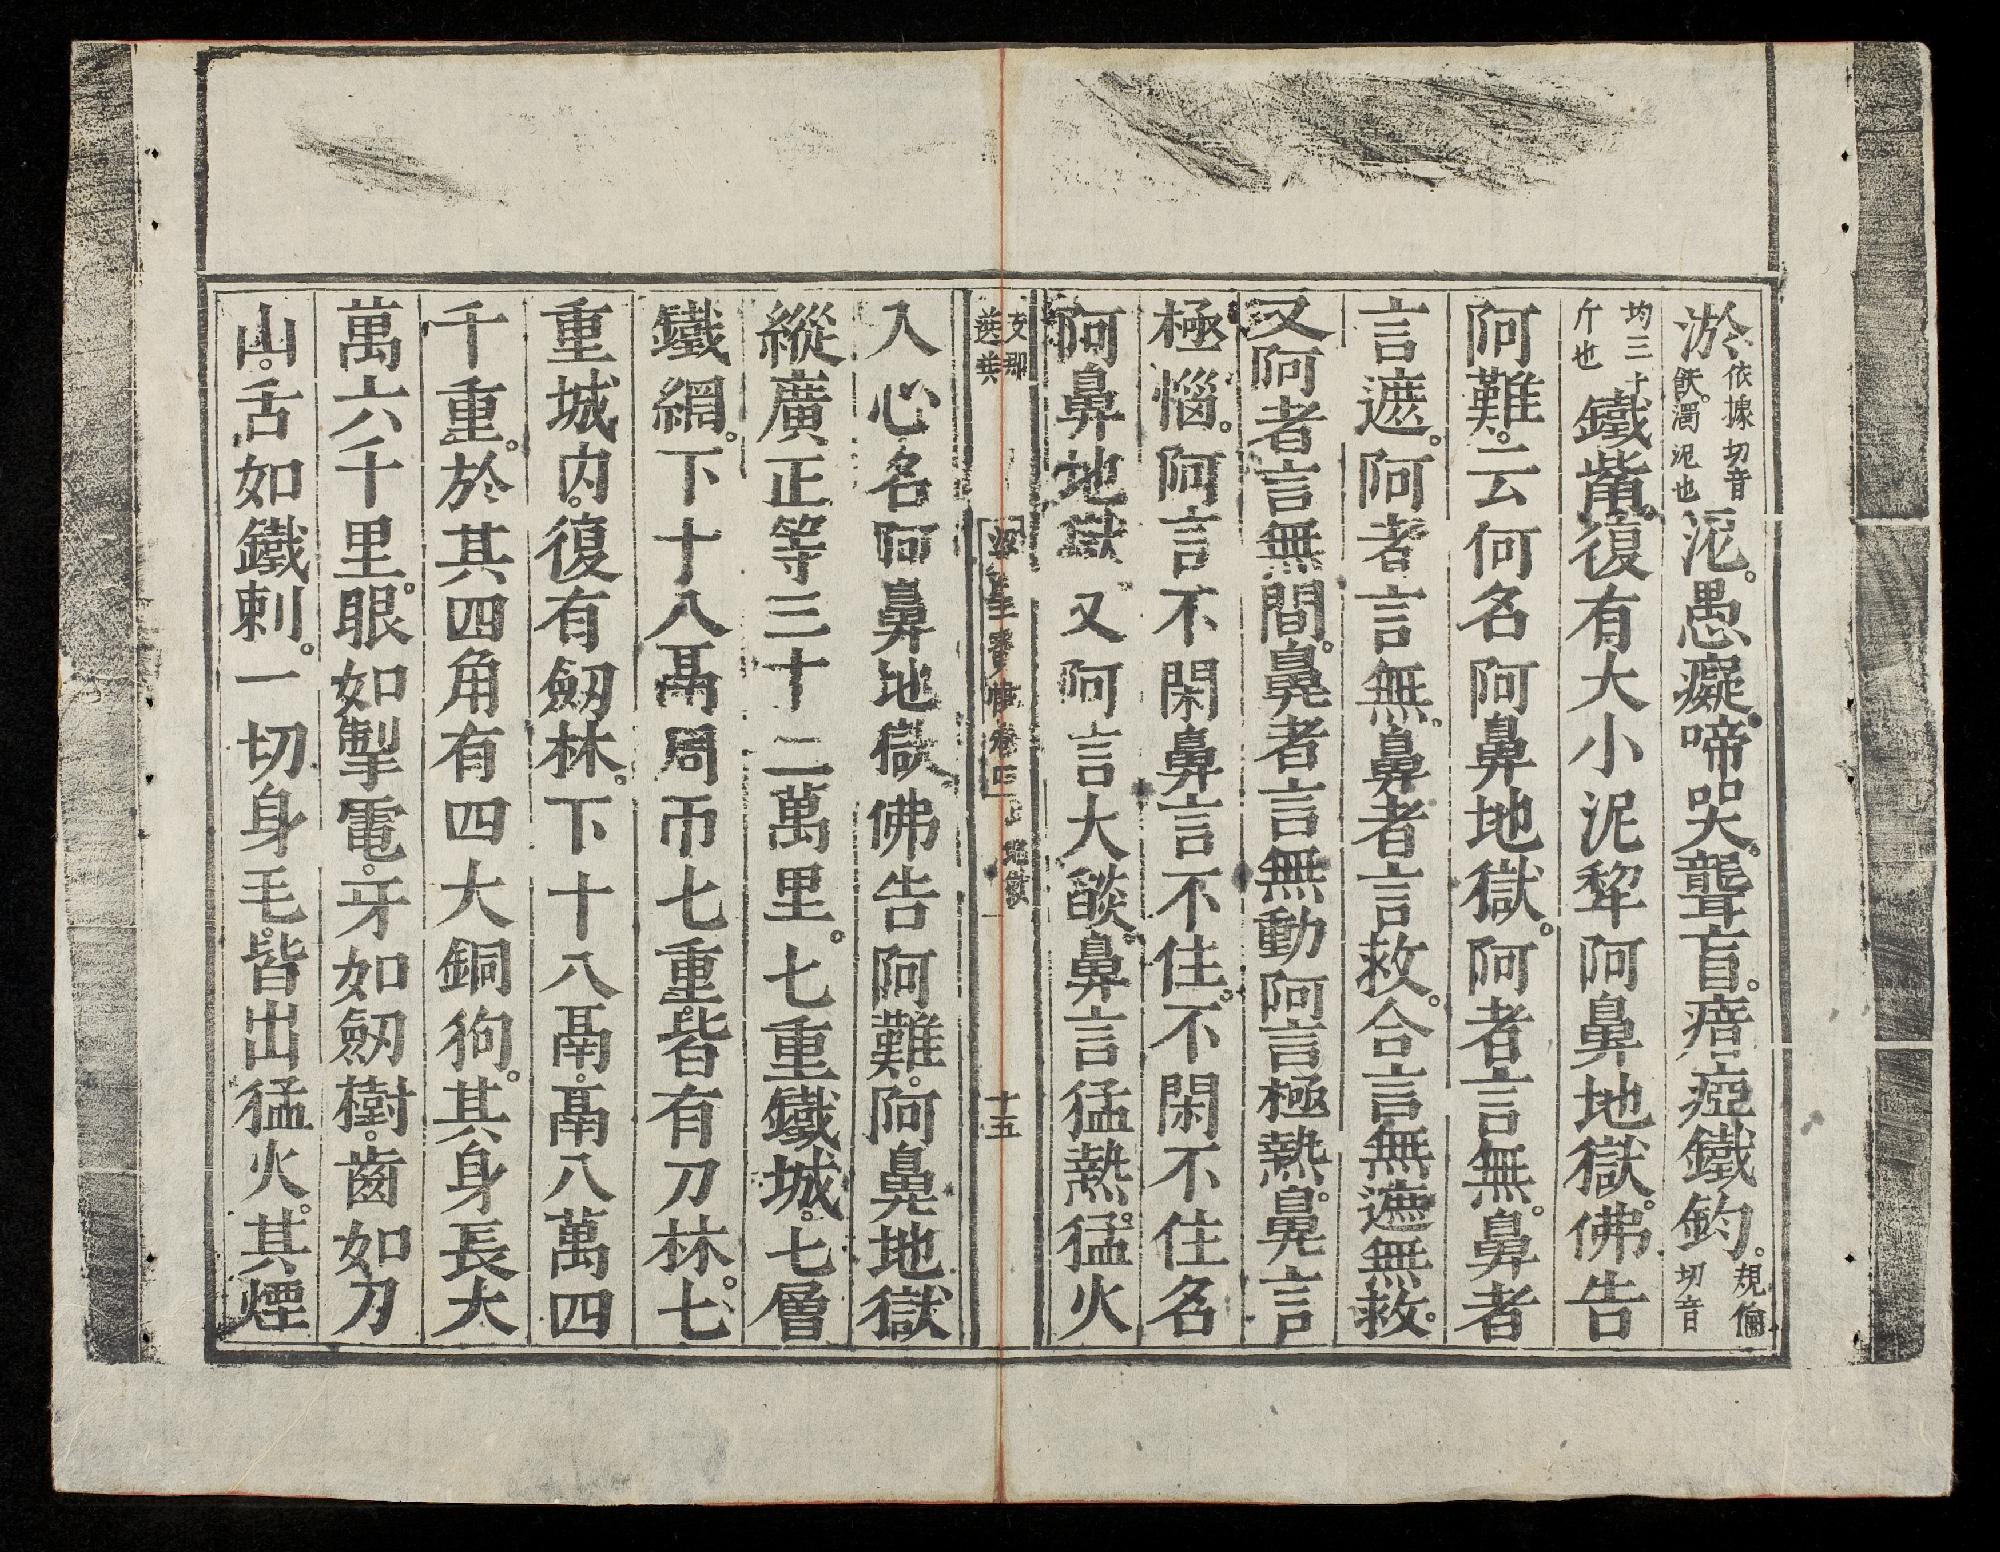 淤依據切音飫濁泥也泥。愚癡。啼哭。聾盲。瘖瘂鐵鈎。規倫切音
均三十斤也鐵觜。復有大小泥犂阿鼻地獄。佛告
阿難。云何名阿鼻地獄。阿者言無。鼻者
言遮。阿者言無。鼻者言救。合言無遮無救。
又阿者言無間。鼻者言無動阿言極熱。鼻言
極惱。阿言不閑鼻言不住。不閑不住名
阿鼻地獄。又阿言大燄。鼻言猛熱。猛火
支那
卷四 地獄
十五
入心名阿鼻地獄。佛告阿難。阿鼻地獄
縱廣正等三十二萬里。七重鐵城。七層
鐵網。下十八鬲周帀七重。皆有刀林。七
重城內。復有劒林。下十八鬲。鬲八萬四
千重。於其四角有四大銅狗。其身長大
萬六千里。眼如掣電。牙如劒樹。齒如刀
山。舌如鐵刺。一切身毛。皆出猛火。其煙